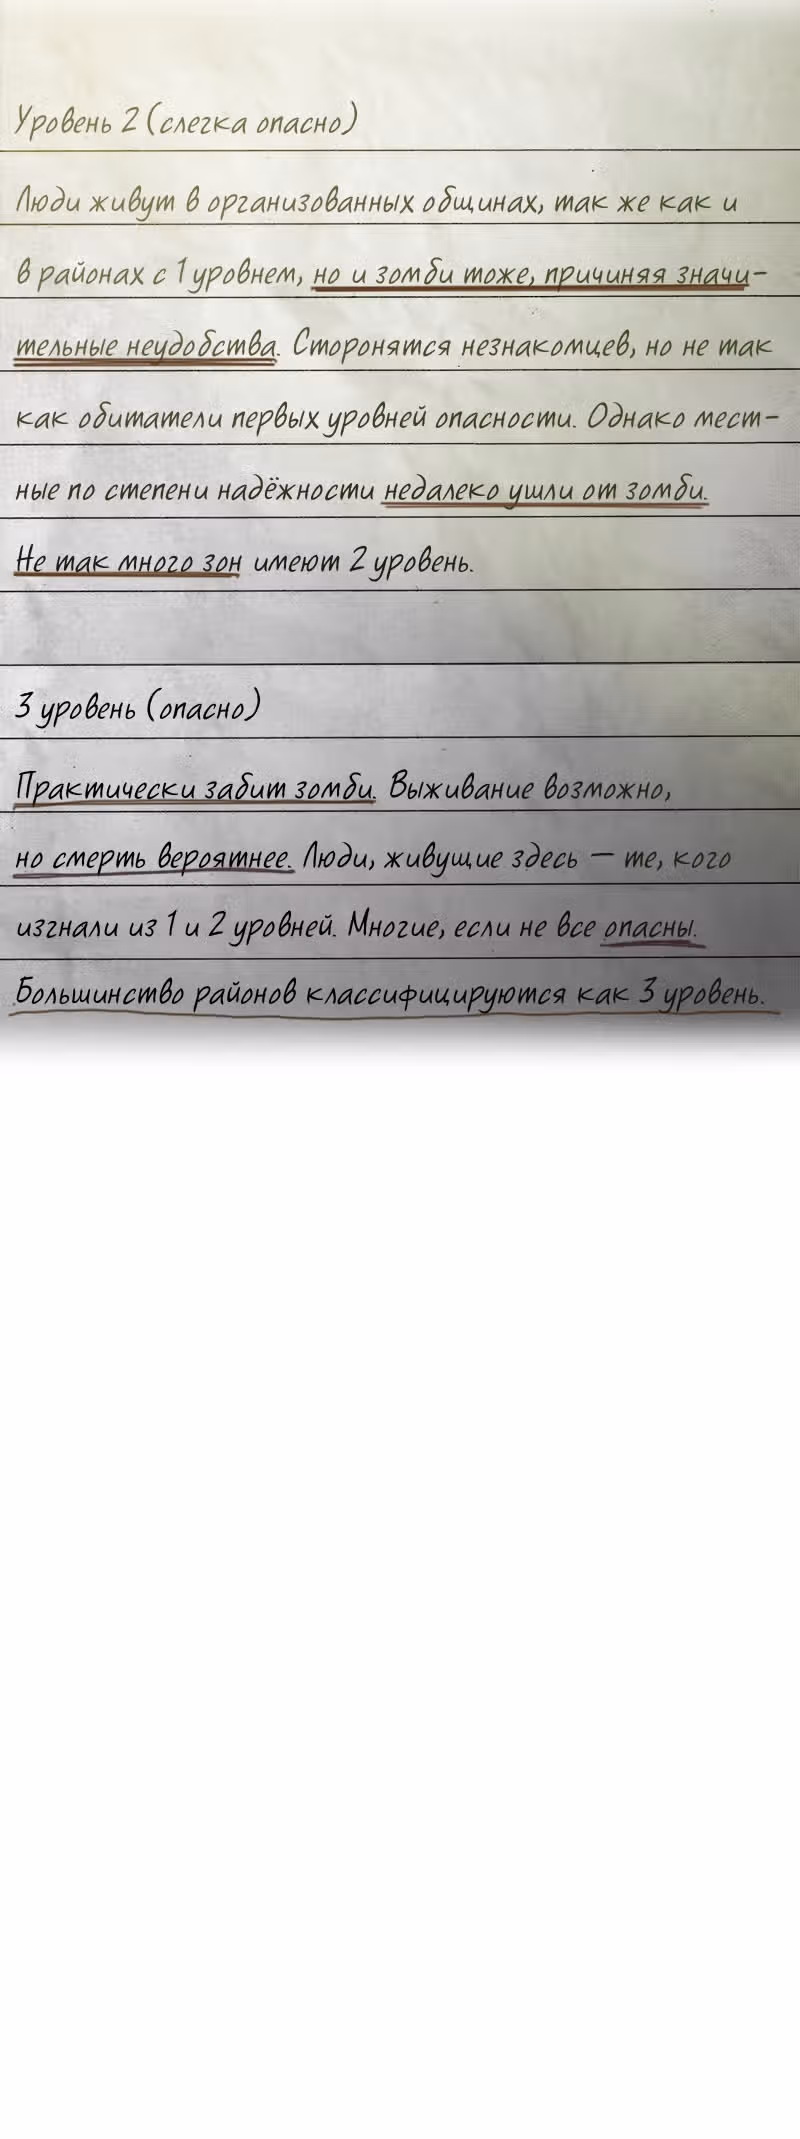 Уровень 2 (слегка опасно)
Люди живут в организованных общинах, так же как и
в районах с 1 уровнем, но и зомби тоже, причиняя значи-
тельные неудобства. Сторонятся незнакомцев, но не так
как обитатели первых уровней опасности. Однако мест-
ные по степени надёжности недалеко ушли от зомби.
Не так много зон имеют 2 уровень.
3 уровень (опасно)
Практически забит зомби. Выживание возможно,
но смерть вероятнее. Люди, живущие здесь — те, кого
изгнали из 1 и 2 уровней. Многие, если не все опасны.
Большинство районов классифицируются как 3 уровень.